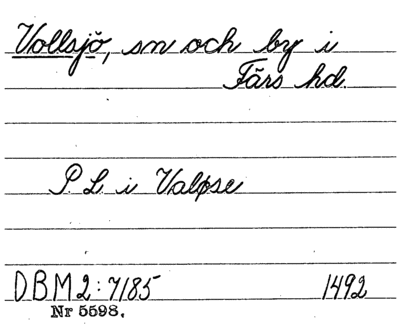 Vollsjö, sn och by i
Färs hd.
P L i Valpse
DBM 2:7185 1492
Nr 5598.